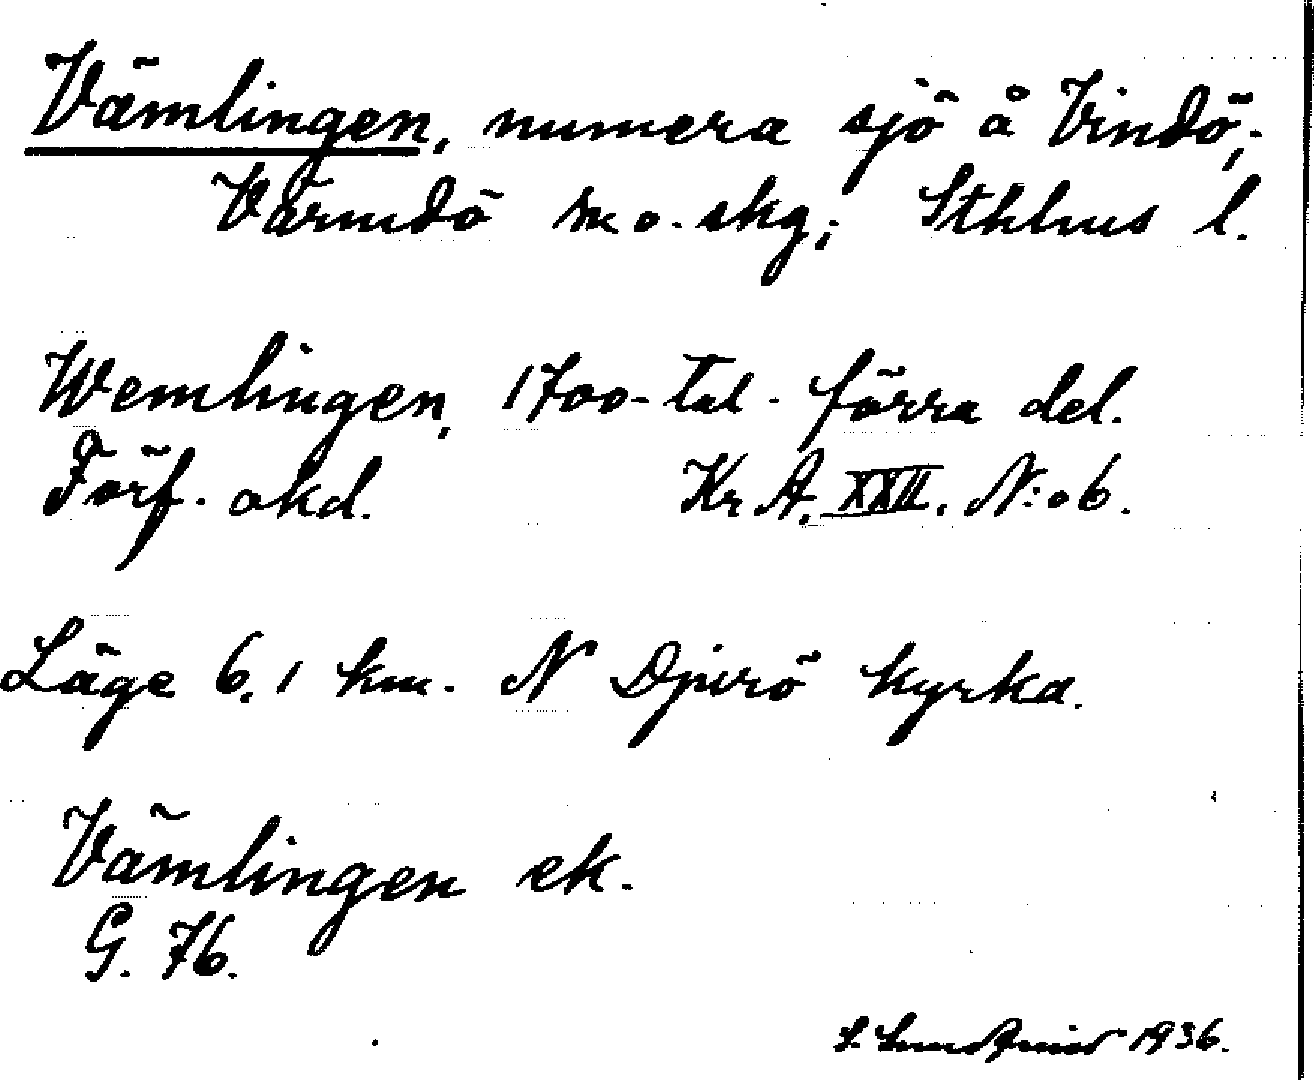 Vämlingen, numera sjö å Vindö,
Värmdö sn o. skg; Sthlms l.
Wemlingen, 1700-tal. förra del.
Förf. okd. Kr A. XXII. N:o 6.
Läge 6,1 km. N Djurö kyrka.
Vämlingen ek.
G. 76.
1936.